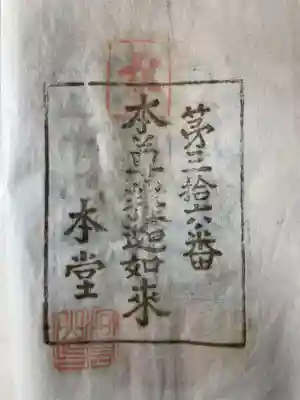 第三拾六番
本尊釋迦如來
本堂